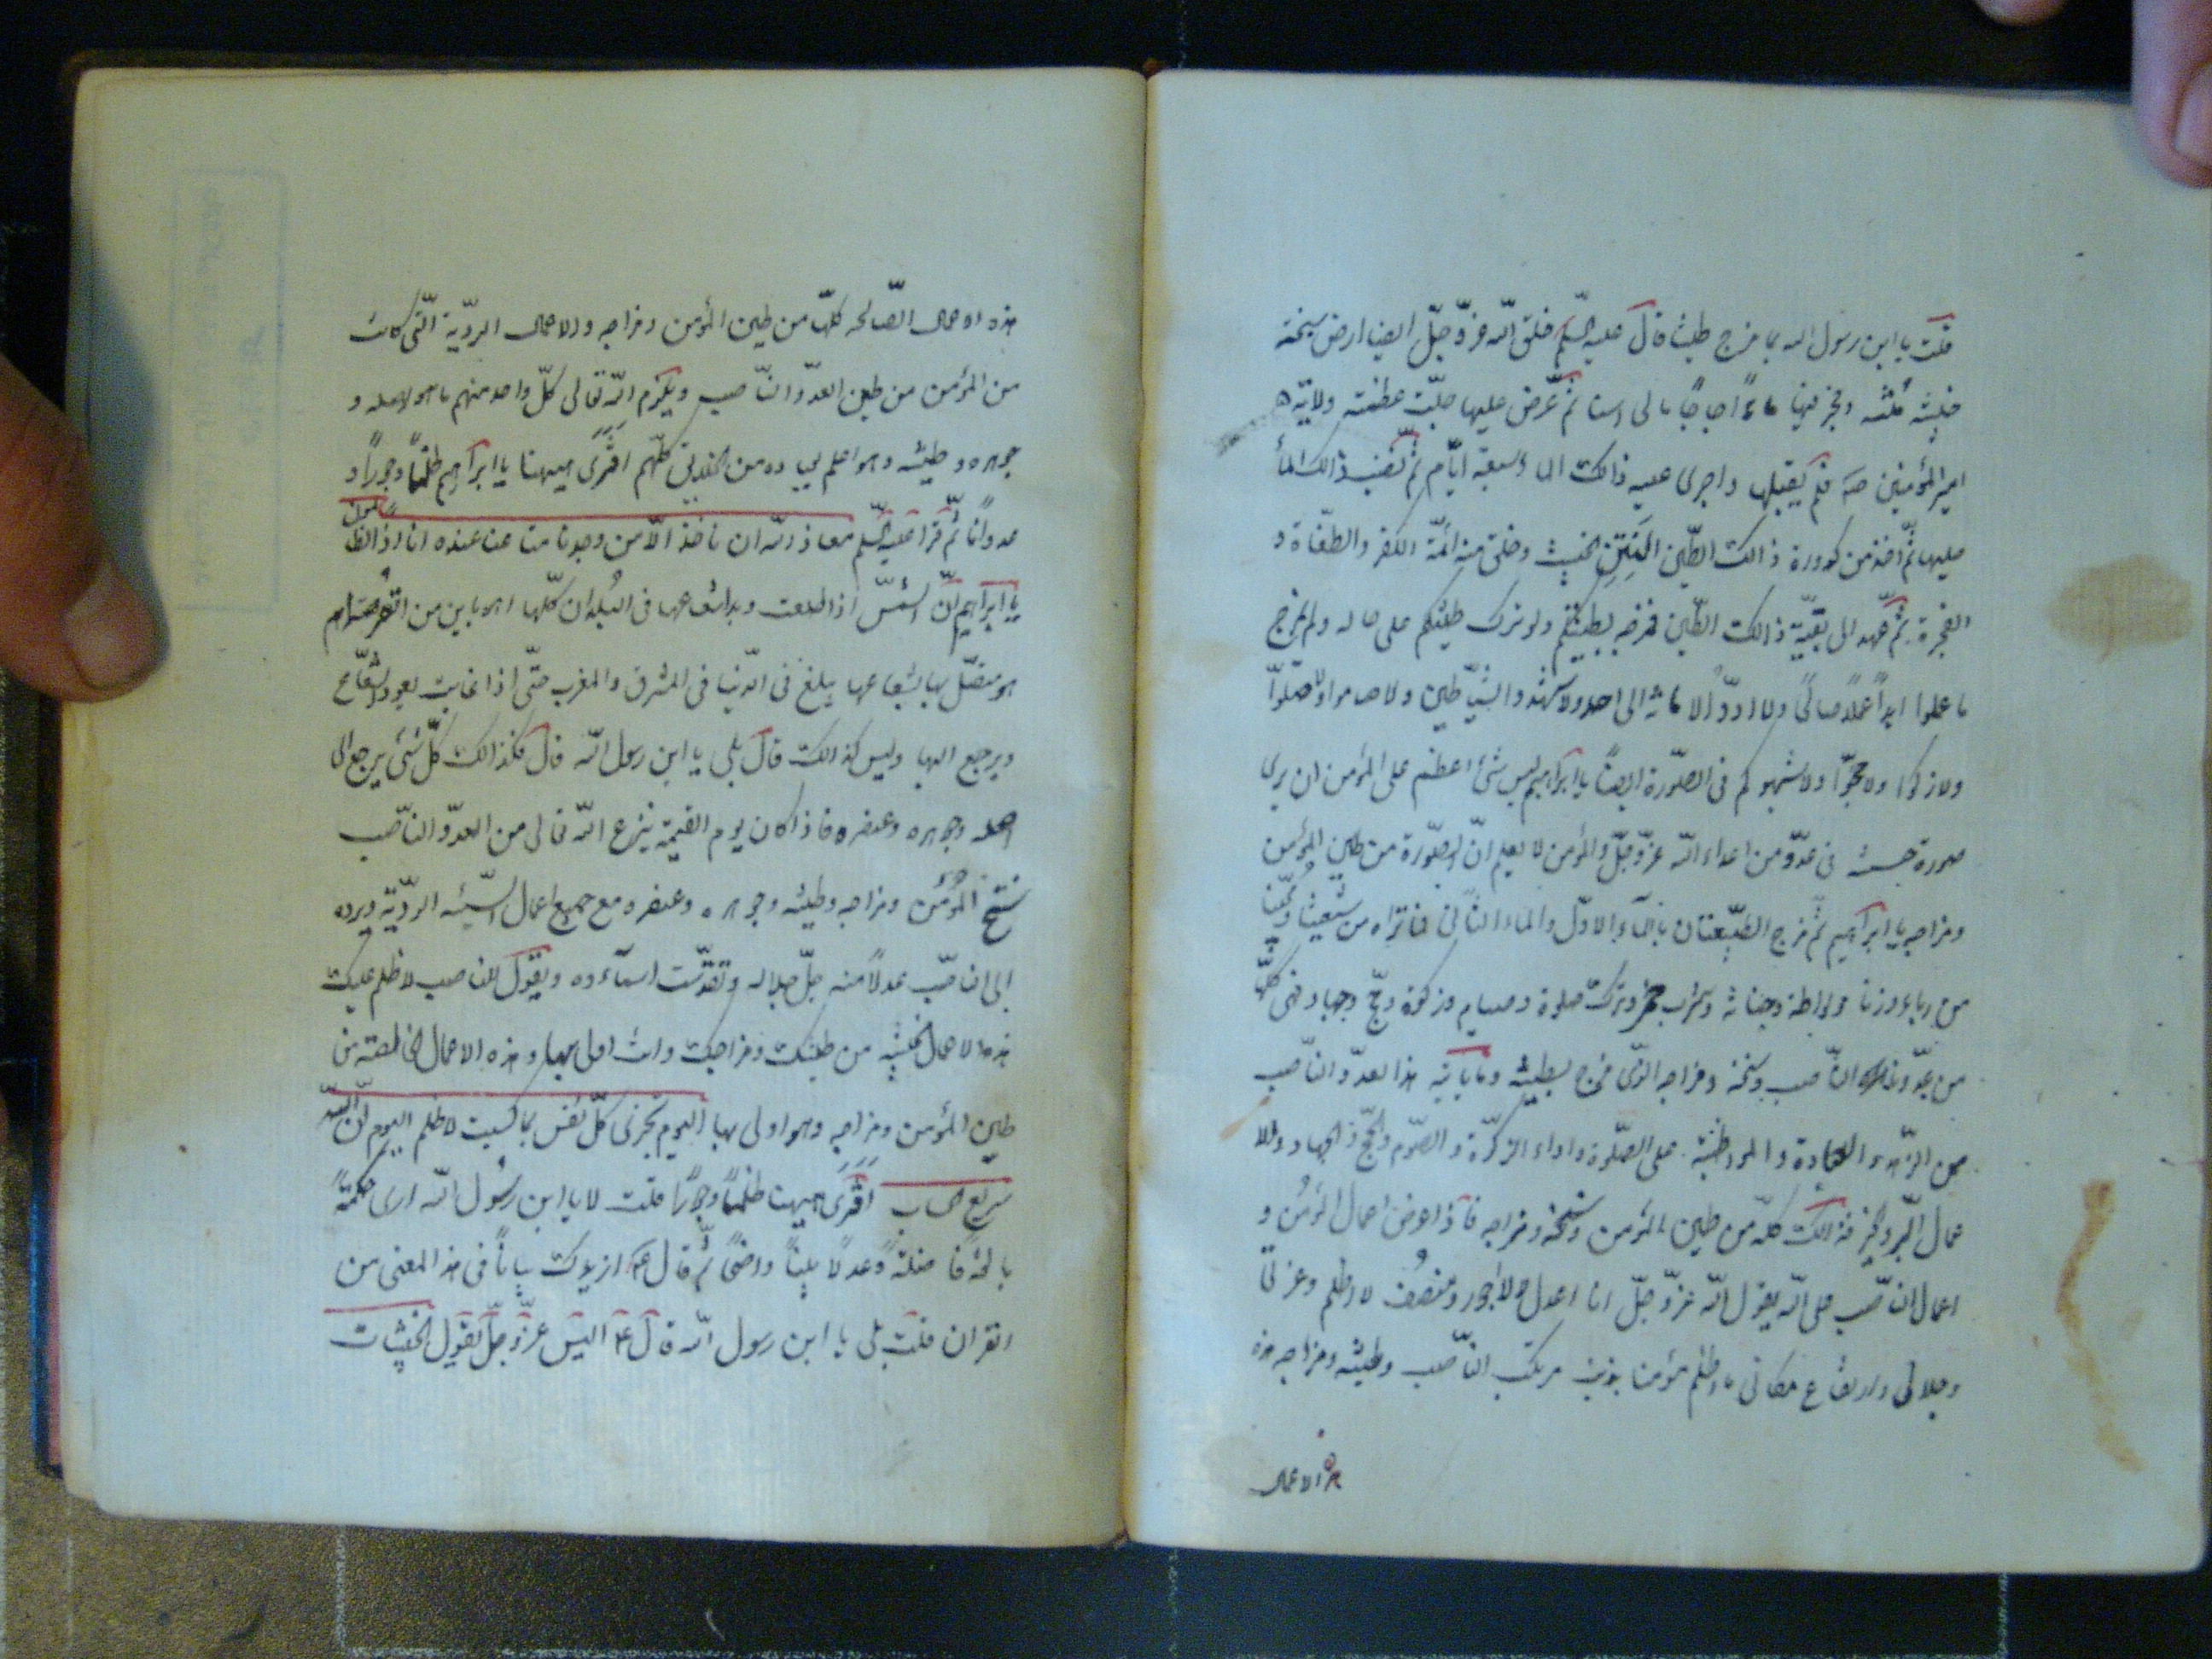 قلت يا ابن رسول الله بما مزج طينتنا قال عليه السلم خلق الله عزّ وجلّ ايضا ارض سبخة
خبيثة منتنة وفجر فيها ماءً اجاجاً مالحا اسنا ثمّ عرض عليها جلّت عظمته ولاية
امير المؤمنين فلم يقبلها واجرى عليه ذالك الماء سبعة ايّام ثمّ نضب ذالك الماء
عليها ثمّ اخذ من كدورة ذالك الطّين المنتن الخبيث وخلق منه ائمّة الكفر والطّغاة و
الفجرة ثمّ عمد الى بقيّة ذالك الطّين فمزجه بطينتكم ولو ترك طينتكم على حاله ولم يمزج
ما عملوا ابداً عملاً صالحاً ولا ادّوا الامانة الى احد ولا شهدوا الشّهادتين ولا صاموا ولا صلّوا
ولا زكّوا ولا حجّوا ولا شبهوكم فى الصّورة ايضاً يا ابراهيم ليس شئ اعظم على المؤمن ان يرى
صورة حسنة فى عدوّ من اعداء الله عزّ وجلّ والمؤمن لا يعلم انّ الصّورة من طين المؤمن
ومزاجه يا ابراهيم ثمّ مزج الطّينتان بالماء الاوّل والماء الثّانى فما تراه من شيعتنا ومحبّينا
من رباء وزنا ولواطة وخيانة وشرب خمر وترك صلوة وصيام وزكوة وحجّ وجهاد فهى كلّها
من عدوّنا النّاصب وسنخه ومزاجه الّذى مزج بطينته وما رايته هذا العدوّ النّاصب
من الزّهد والعبادة والمواظبة على الصّلوة واداء الزّكوة والصّوم والحجّ والجهاد والا
عمال البرّ والخير فذالك كلّه من طين المؤمن وسنخه ومزاجه فاذا عرض اعمال المؤمن و
اعمال النّاصب على الله يقول الله عزّ وجلّ انا اعدل لا اجور ومنصف لا اظلم وعزّتى
وجلالى وارتفاع مكانى ما اظلم مؤمنا بذنب مرتكب النّاصب وطينته ومزاجه هذه
هذه الاعمال
هذه الاعمال الصّالحه كلّها من طين المؤمن ومزاجه والاعمال الرديّة الّتى كانت
من المؤمن من طين العدوّ النّاصب ويلزم الله تعالى كلّ واحد منهم ما هو لاصله و
جوهره وطينته وهو اعلم بعباده من الخلايق كلّهم افترى هيهنا يا ابراهيم ظلماً وجوراً و
عدواناً ثمّ قرأ عليه السّلم معاذ الله ان ناخذ الّا من وجدنا متاعنا عنده انا اذا لظالمون
يا ابراهيم انّ الشّمس اذا طلعت وبدا شعاعها فى البلدان كلّها اهو باين من القرصة ام
هو متصل بها شعاعها يبلغ فى الدّنيا فى المشرق والمغرب حتّى اذا غابت يعود الشّعاع
ويرجع اليها وليس كذالك قال بلى يا ابن رسول الله قال فكذالك كلّ شئ يرجع الى
اصله وجوهره وعنصره فاذا كان يوم القيمة ينزع الله تعالى من العدوّ النّاصب
سنخ المؤمن ومزاجه وطينته وجوهره وعنصره مع جميع اعمال السّيّئه الرديّة ويرده
الى النّاصب عدلاً منه جلّ جلاله وتقدّست اسمآءه ويقول للناصب لا ظلم عليك
هذه الاعمال الخبيثة من طينتك ومزاجك وانت اولى بها وهذه الاعمال الصّالحة من
طين المؤمن ومزاجه وهو اولى بها اليوم تجزى كلّ نفس بما كسبت لا ظلم اليوم انّ الله
سريع الحساب افترى هيهنا ظلماً وجوراً قلت لا يا ابن رسول الله ارى حكمةً
بالغة فاضلةً وعدلاً بيّناً واضحاً ثمّ قال ازيدك بياناً فى هذا المعنى من
القران قلت بلى يا ابن رسول الله قال اليس عزّ وجلّ يقول الخبيثات